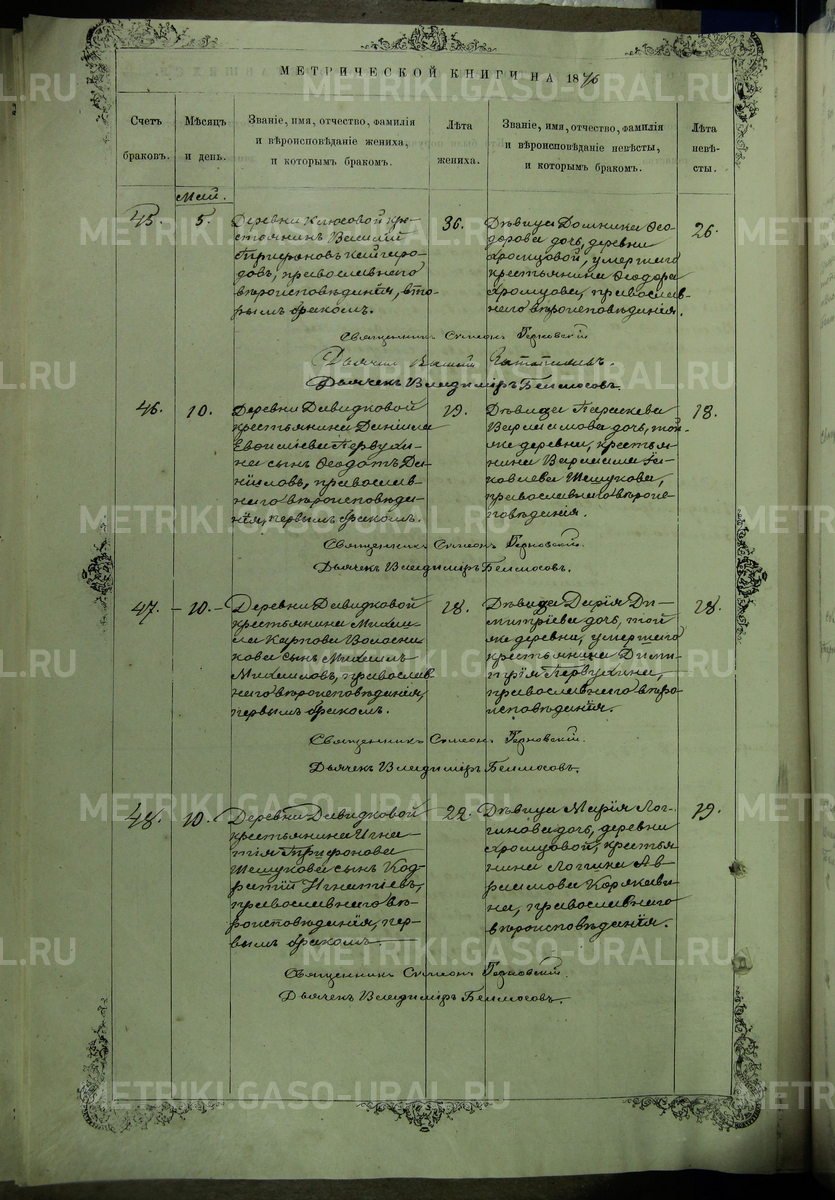 МЕТРИЧЕСКОЙ КНИГИ НА 1876
Счетъ браковъ.
Мѣсяцъ и день.
Званіе, имя, отчество, фамилія
и вѣроисповѣданіе жениха,
и которымъ бракомъ.
Лѣта жениха.
Званіе, имя, отчество, фамилія
и вѣроисповѣданіе невѣсты,
и которымъ бракомъ.
Лѣта невѣ-
сты.
Май.
45.
5.
Деревни Клюсовой кре-
стьянинъ Василій
Трифоновъ Кайгоро-
довъ, православнаго
вѣроисповѣданія, вто-
рымъ бракомъ.
36.
Дѣвица Домника Ѳео-
дорова дочь, деревни
Хромцовой, умершаго
крестьянина Ѳеодора
Хромцова, православ-
наго вѣроисповѣданія.
26.
Священникъ Симеонъ
Дьячекъ Владиміръ Бѣлоносовъ.
46.
10.
Деревни Давидковой
крестьянина Даніила
Первухи-
на сынъ Ѳеодотъ Да-
ніиловъ, православ-
наго вѣроисповѣда-
нія, первымъ бракомъ.
19.
Дѣвица Параскева
Варлаамова дочь, той-
же деревни, крестья-
нина Варлаама Іа-
ковлева Шешукова,
православнаго вѣроис-
повѣданія.
18.
Священникъ Симеонъ
Дьячекъ Владиміръ Бѣлоносовъ.
47.
10.
Деревни Давидковой
крестьянина Михаи-
ла Карпова Волосни-
кова сынъ Михаилъ
Михаиловъ, православ-
наго вѣроисповѣданія,
первымъ бракомъ.
18.
Дѣвица Дарія Ди-
митріева дочь, той
же деревни, умершаго
крестьянина Дими-
трія Первухина,
православнаго вѣро-
исповѣданія.
18.
Священникъ Симеонъ
Дьячекъ Владиміръ Бѣлоносовъ.
48.
10.
Деревни Давидковой
крестьянина Игна-
тія Трифонова
Шешукова сынъ Код-
ратій Игнатіевъ,
православнаго вѣ-
роисповѣданія, пер-
вымъ бракомъ.
22.
Дѣвица Марія Лог-
гинова дочь, деревни
Хромцовой, крестья-
нина Логгина Ав-
раамова Корякови-
на, православнаго
вѣроисповѣданія.
19.
Священникъ Симеонъ
Дьячекъ Владиміръ Бѣлоносовъ.
METRIKI.GASO-URAL.RU